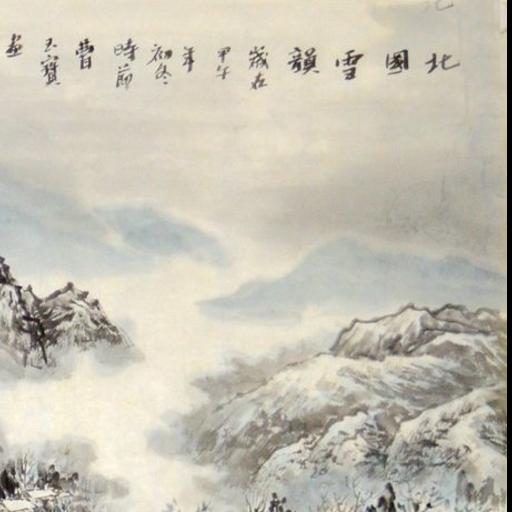 北國雪韻歲在甲午年初冬時節曹玉寶畫